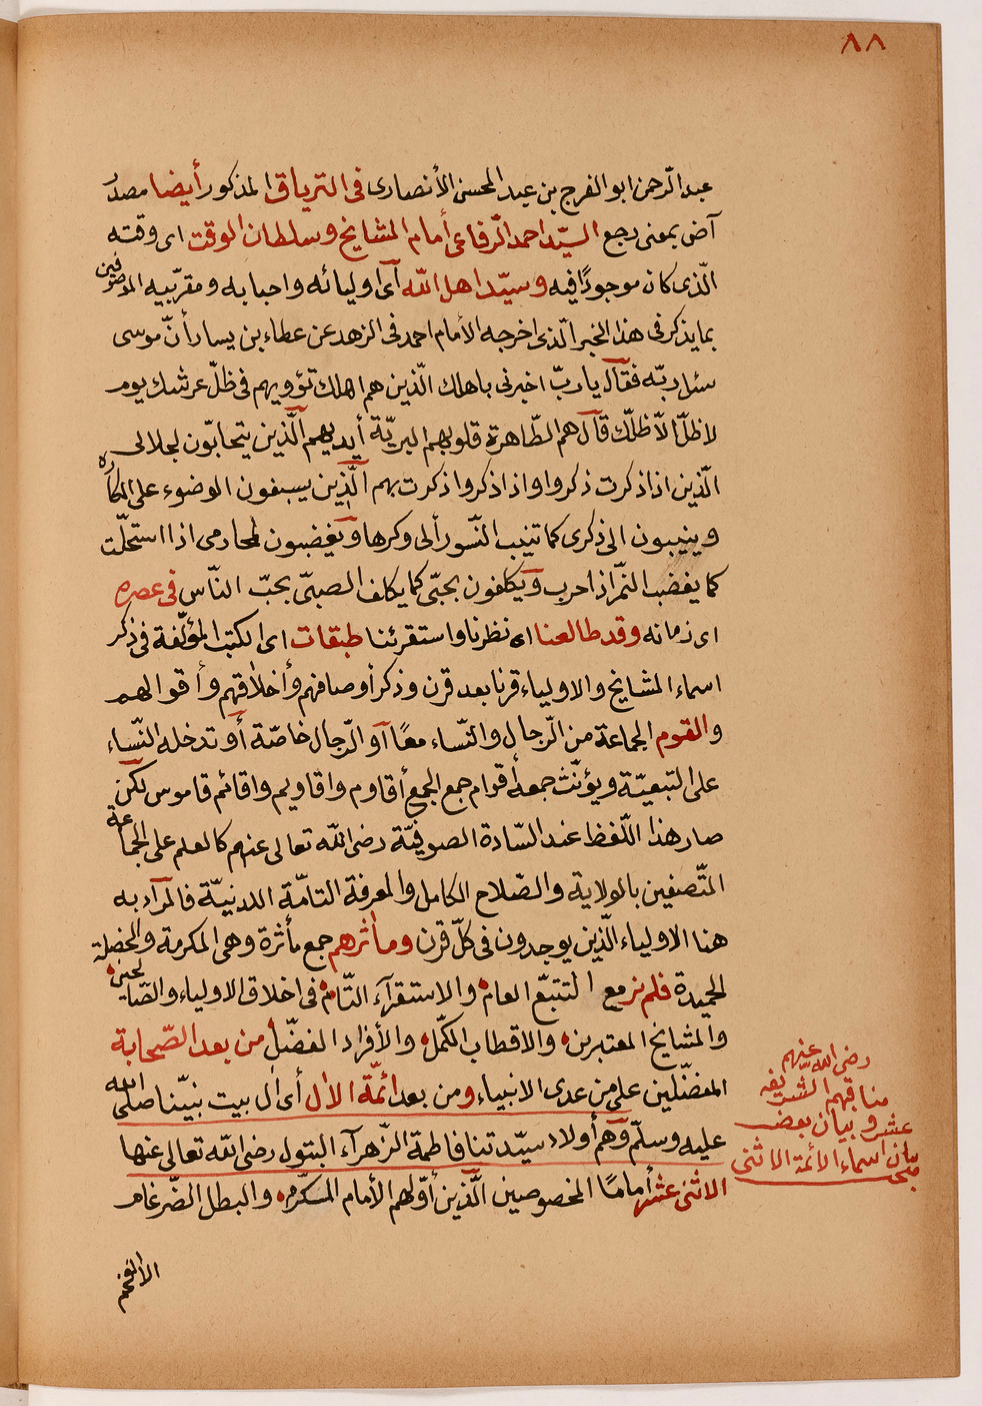 ٨٨
عبد الرّحمن ابو الفرج بن عبد المحسن الأنصارى فى الترياق المذكور أيضا مصدر
آض بمعنى رجع السيّد احمد الرّفاعى أمام المشايخ وسلطان الوقت اى وقته
الّذى كان موجودًا فيه وسيّد اهل اللّه آى اوليائه واحبابه ومقرّبيه الموصوفين
بما يذكر فى هذا الخبر الّذى اخرجه الأمام احمد فى الزهد عن عطاء بن يسار أنّ موسى
سئل ربّه فقال يا ربّ اخبرنى باهلك الّذين هم اهلك تؤويهم فى ظلّ عرشك يوم
لا ظلّ الاّ ظلّك قال هم الطّاهرة قلوبهم البريّة أيديهم الّذين يتحابّون لجلالى
الّذين اذا ذكرت ذكروا واذا ذكروا ذكرت بهم الّذين يسبغون الوضوء على المكاره
وينيبون الى ذكرى كما تنيب النّسور ألى وكرها ويغضبون لمحارمى اذا استحلّت
كما يغضب النّمر اذا حرب ويكلفون بحبّى كما يكلف الصبىّ بحبّ النّاس فى عصره
اى زمانه وقد طالعنا اى نظرنا واستقرئنا طبقات اى الكتب المؤلّفة فى ذكر
اسماء المشايخ والاولياء قرنا بعد قرن وذكر أوصافهم وأخلاقهم وأقوالهم
والقوم الجماعة من الرّجال والنّساء معًا آو الرّجال خاصّة أو تدخله النّساء
على التبعيّة ويؤنّث جمعه أقوام جمع الجمع أقاوم واقاويم واقائم قاموس لكن
صار هذا اللّفظ عند السّادة الصوفيّة رضى اللّه تعالى عنهم كالعلم على الجماعة
المتّصفين بالولاية والصّلاح الكامل والمعرفة التامّة اللدنيّة فالمرآد به
هنا الاولياء الّذين يوجدون فى كلّ قرن ومآثرهم جمع مأثرة وهى المكرمة والخصلة
الحميدة فلم نر مع التتبّع العام والاستقرآء التّام فى اخلاق الاولياء والصّالحين
والمشايخ المعتبرين والاقطاب الكمّل والأفراد الفضّل من بعد الصّحابة
المفضّلين على من عدى الانبياء ومن بعد ائمّة الاٰل أى اٰل بيت نبيّنا صلى اللّه
عليه وسلّم وهم أولاد سيّدتنا فاطمة الزّهرآء البتول رضى اللّه تعالى عنها
الاثنى عشر أمامًا المخصوصين الّذين أوّلهم الأمام المكرّم والبطل الضّرغام
مبحث بيان اسماء الائمة الاثنى
عشر وبيان بعض
مناقبهم الشريفه
رضى اللّه عنهم